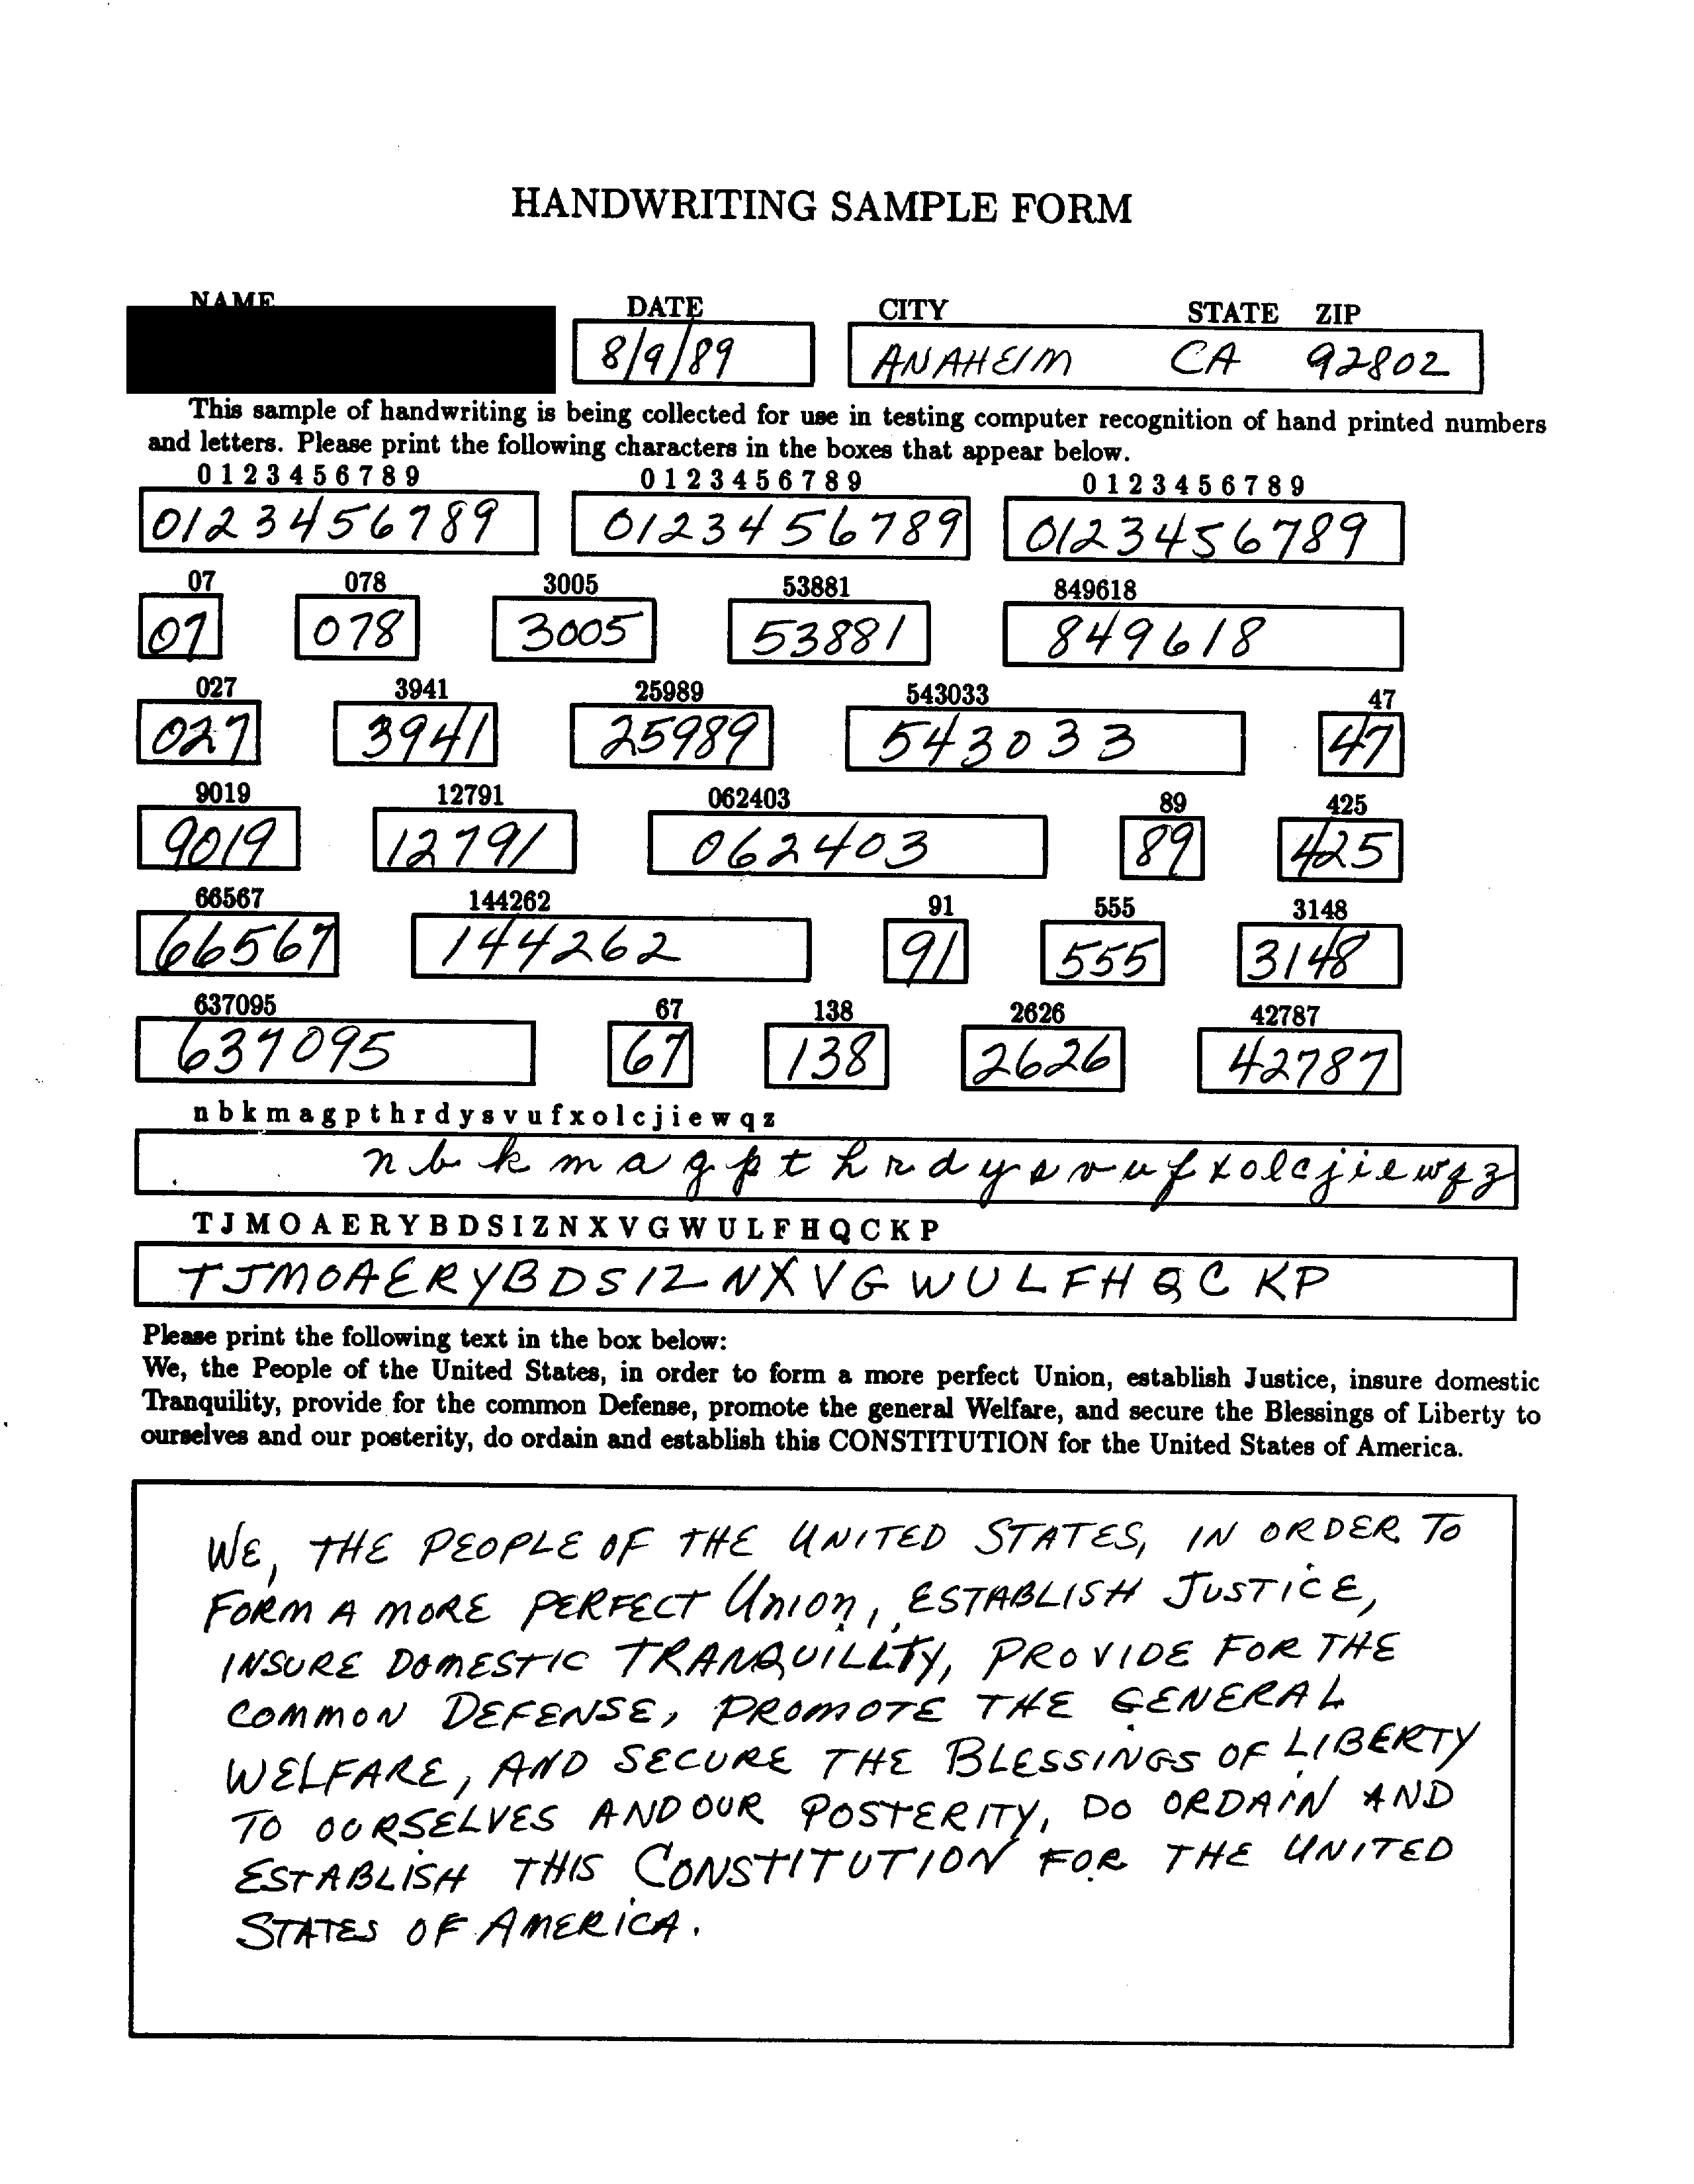 HANDWRITING SAMPLE FORM
NAME DATE CITY STATE ZIP
8/9/89 ANAHEIM CA 92802
This sample of handwriting is being collected for use in testing computer recognition of hand printed numbers
and letters. Please print the following characters in the boxes that appear below.
0 1 2 3 4 5 6 7 8 9 0 1 2 3 4 5 6 7 8 9 0 1 2 3 4 5 6 7 8 9
0123456789 0123456789 0123456789
07 078 3005 53881 849618
07 078 3005 53881 849618
027 3941 25989 543033 47
027 3941 25989 543033 47
9019 12791 062403 89 425
9019 12791 062403 89 425
66567 144262 91 555 3148
66567 144262 91 555 3148
637095 67 138 2626 42787
637095 67 138 2626 42787
n b k m a g p t h r d y s v u f x o l c j i e w q z
n b k m a g p t h r d y s v u f x o l c j i e w q z
T J M O A E R Y B D S I Z N X V G W U L F H Q C K P
T J M O A E R Y B D S I Z N X V G W U L F H Q C K P
Please print the following text in the box below:
We, the People of the United States, in order to form a more perfect Union, establish Justice, insure domestic
Tranquility, provide for the common Defense, promote the general Welfare, and secure the Blessings of Liberty to
ourselves and our posterity, do ordain and establish this CONSTITUTION for the United States of America.
WE, THE PEOPLE OF THE UNITED STATES, IN ORDER TO
FORM A MORE PERFECT UNION, ESTABLISH JUSTICE,
INSURE DOMESTIC TRANQUILLTY, PROVIDE FOR THE
COMMON DEFENSE, PROMOTE THE GENERAL
WELFARE, AND SECURE THE BLESSINGS OF LIBERTY
TO OURSELVES AND OUR POSTERITY, DO ORDAIN AND
ESTABLISH THIS CONSTITUTION FOR THE UNITED
STATES OF AMERICA.